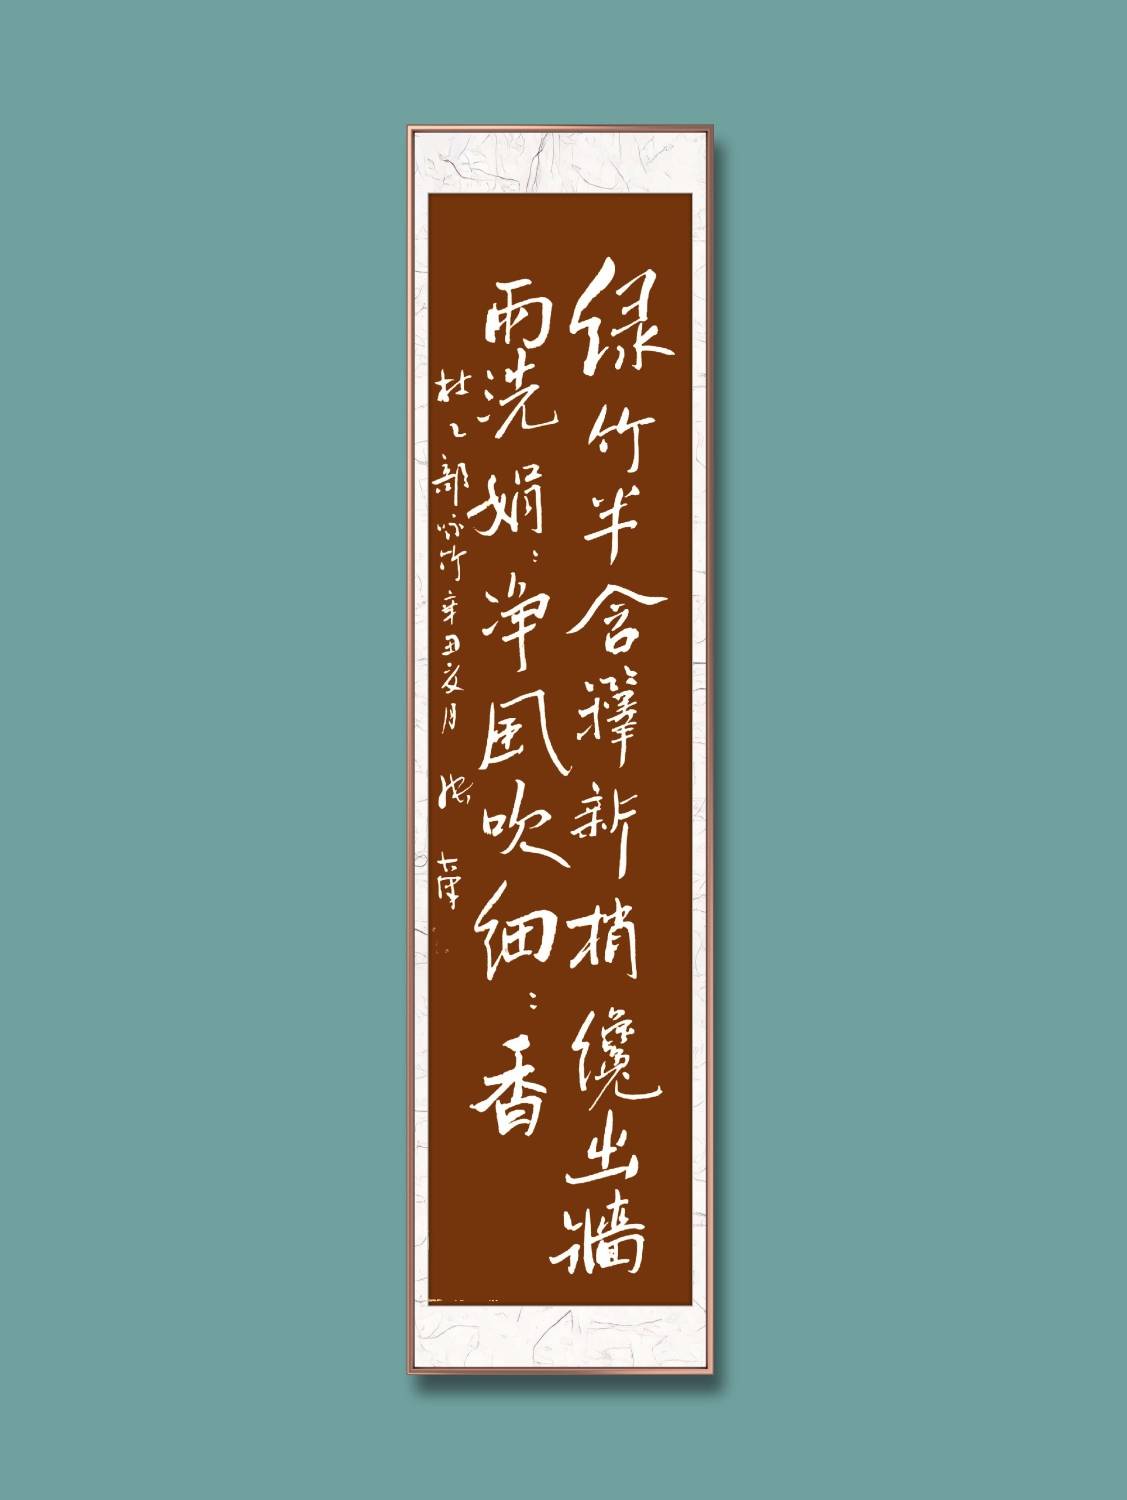 绿竹半含籜新梢纔出牆
雨洗娟:净風吹细:香
杜工部咏竹辛丑夏月 張